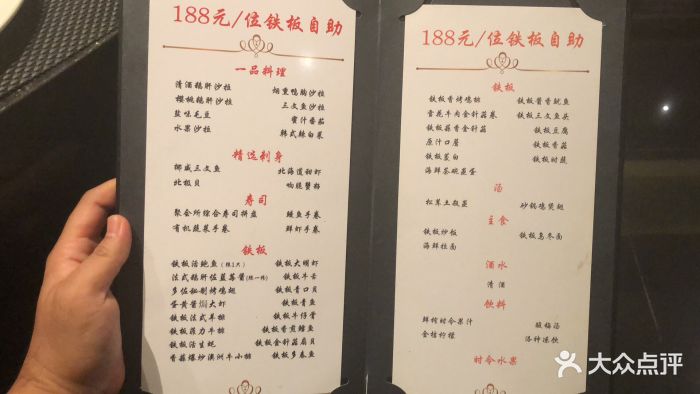 188元/位铁板自助
一品料理
清酒鹅肝沙拉 烟熏鸭胸沙拉
樱桃鹅肝沙拉 三文鱼沙拉
盐味毛豆 蜜汁番茄
水果沙拉 韩式辣白菜
精选刺身
挪威三文鱼 北海道甜虾
北极贝 响脆蟹籽
寿司
聚会所综合寿司拼盘 鳗鱼手卷
有机蔬菜手卷 鲜虾手卷
铁板
铁板活鲍鱼(限1只) 铁板大明虾
法式鹅肝佐蓝莓酱(限一份) 铁板牛舌
多佐秘制烤鸡翅 铁板青口贝
蛋黄酱焗大虾 铁板青鱼
铁板法式羊排 铁板牛仔骨
铁板菲力牛排 铁板香煎鳕鱼
铁板活生蚝 铁板金针菇扇贝
香蒜爆炒澳洲牛小排 铁板多春鱼
188元/位铁板自助
铁板
铁板香烤鸡排 铁板酱香鱿鱼
雪花牛肉金针菇卷 铁板三文鱼头
铁板蒜香金针菇 铁板豆腐
原汁口蘑 铁板香菇
铁板茭白 铁板时蔬
海鲜茶碗蒸蛋
汤
松茸土瓶蒸 砂锅鸡煲翅
主食
铁板炒饭 铁板乌冬面
海鲜拉面
酒水
清酒
饮料
鲜榨时令果汁 酸梅汤
金桔柠檬 洛神冻饮
时令水果
大众点评